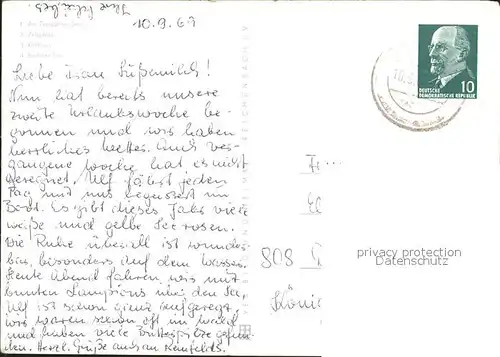 Ihre
10.9.69
Liebe Frau Süßmilch!
Nun hat bereits unsere
zweite Urlaubswoche be-
gonnen und wir haben
herrliches Wetter. Auch ver-
gangene Woche hat es nicht
geregnet. Ulf fährt jeden
Tag mit uns begeistert im
Boot. Es gibt dieses Jahr viele
weiße und gelbe Seerosen.
Die Ruhe überall ist wunder-
bar, besonders auf dem Wasser.
Heute Abend fahren wir mit
bunten Lampions über den See,
Ulf ist schon ganz aufgeregt,
wir waren schon oft im Wald
und haben viele Butterpilze gefun-
den. Herzl. Grüße auch an
DEUTSCHE
DEMOKRATISCHE REPUBLIK
10
808
König
privacy protection
Datenschutz